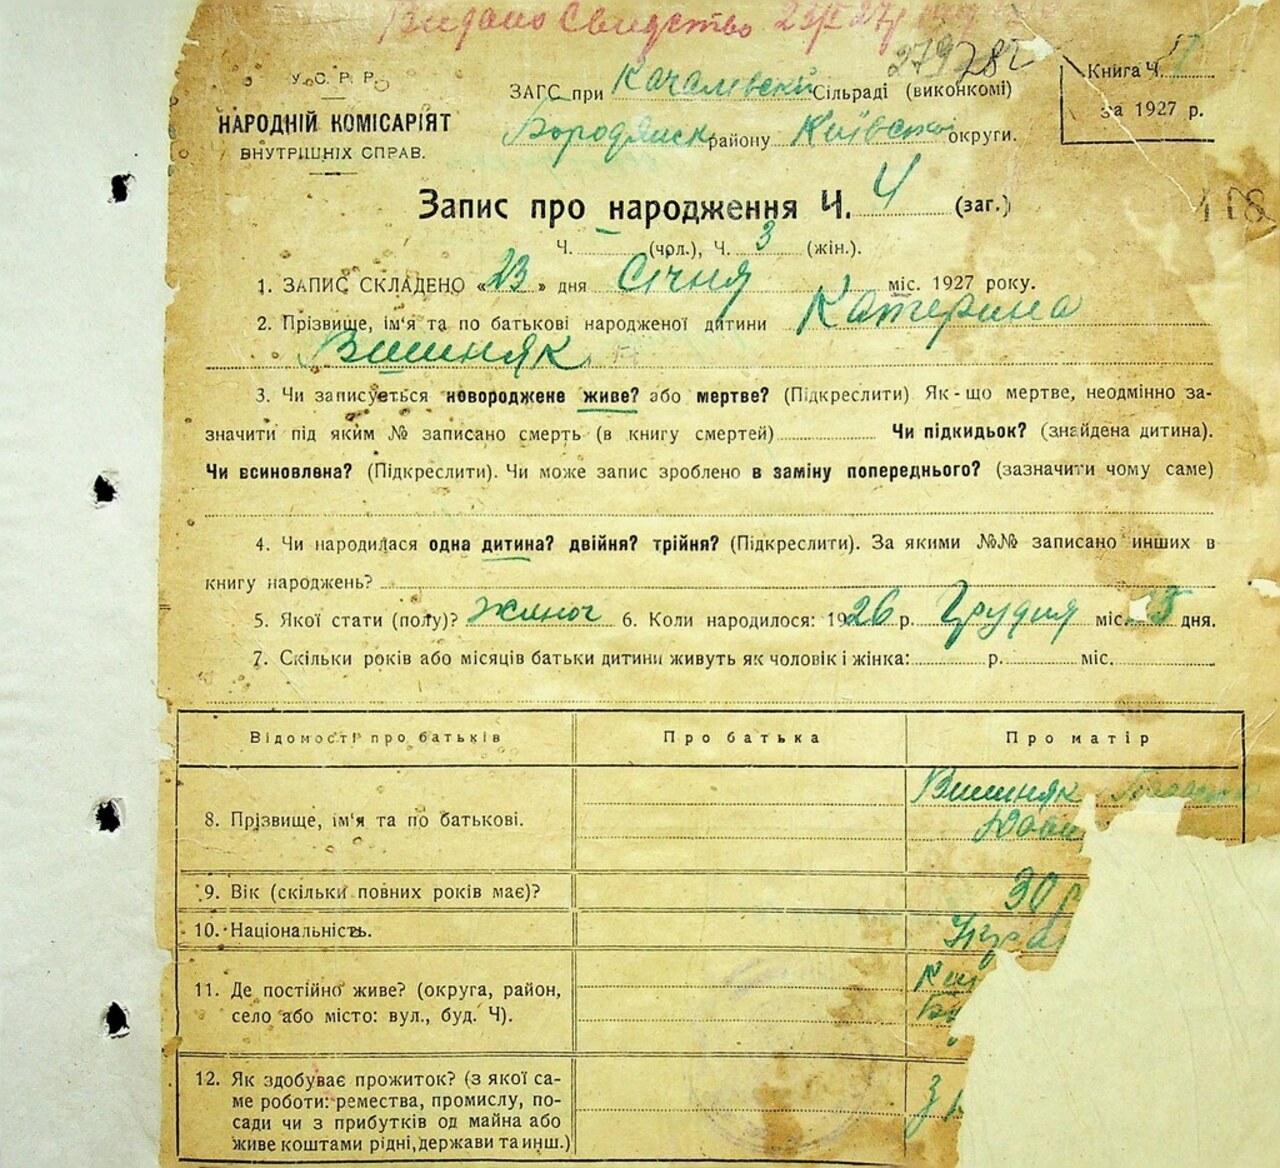 Видано Свидєтство 23/I 27р
279 782
У. С. Р. Р.
НАРОДНІЙ КОМІСАРІЯТ
ВНУТРІШНІХ СПРАВ.
ЗАГС при Качалівській Сільраді (виконкомі)
Бородянск району Київської округи.
Книга Ч.
за 1927 р.
Запис про народження Ч. 4 (заг.)
118
Ч. (чол.), Ч. 3 (жін.).
1. ЗАПИС СКЛАДЕНО «23» дня Січня міс. 1927 року.
2. Прізвище, ім'я та по батькові народженої дитини Катерина
Вишиняк
3. Чи записується новороджене живе? або мертве? (Підкреслити) Як-що мертве, неодмінно за-
значити під яким № записано смерть (в книгу смертей) Чи підкидьок? (знайдена дитина).
Чи всиновлена? (Підкреслити). Чи може запис зроблено в заміну попереднього? (зазначити чому саме)
4. Чи народилася одна дитина? двійня? трійня? (Підкреслити). За якими №№ записано инших в
книгу народжень?
5. Якої стати (полу)? жиноч 6. Коли народилося: 1926 р. Грудня міс. 5 дня.
7. Скільки років або місяців батьки дитини живуть як чоловік і жінка: р. міс.
Відомості про батьків Про батька Про матір
8. Прізвище, ім'я та по батькові.
Вишиняк
9. Вік (скільки повних років має)? 30 р
10. Національність.
11. Де постійно живе? (округа, район,
село або місто: вул., буд. Ч).
12. Як здобуває прожиток? (з якої са-
ме роботи: ремества, промислу, по-
сади чи з прибутків од майна або
живе коштами рідні, держави та инш.)